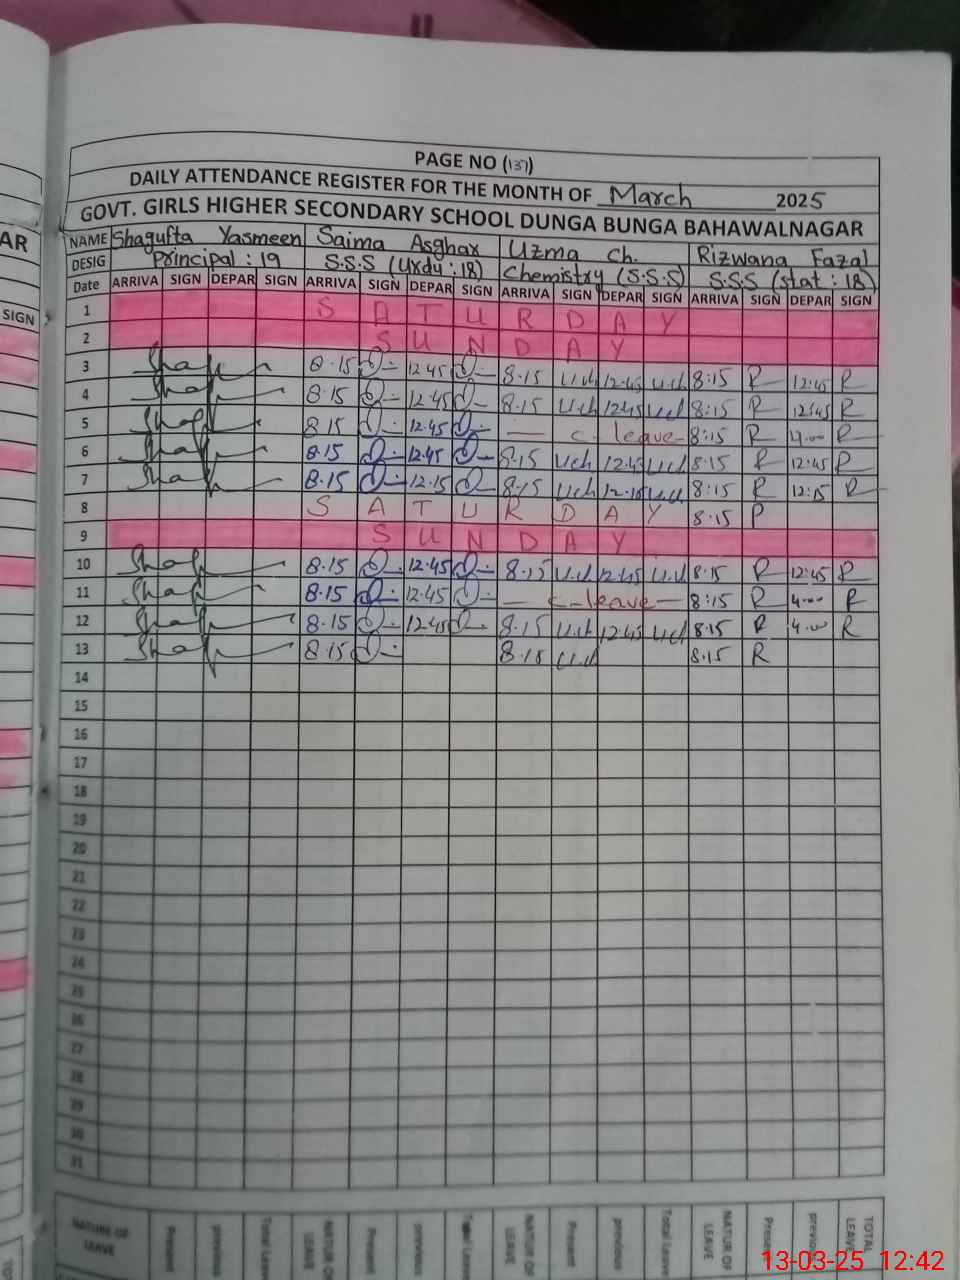 PAGE NO (137)
DAILY ATTENDANCE REGISTER FOR THE MONTH OF March 2025
GOVT. GIRLS HIGHER SECONDARY SCHOOL DUNGA BUNGA BAHAWALNAGAR
NAME Shagufta Yasmeen Saima Asghar Uzma Ch. Rizwana Fazal
DESIG Principal : 19 S.S.S (Urdu : 18) Chemistry (S.S.S) S.S.S (stat : 18)
Date ARRIVA SIGN DEPAR SIGN ARRIVA SIGN DEPAR SIGN ARRIVA SIGN DEPAR SIGN ARRIVA SIGN DEPAR SIGN
1 SATURDAY
2 SUNDAY
3 8.15 12.45 8.15 U.ch 12.45 U.ch 8:15 R 12:45 R
4 8.15 12.45 8.15 U.ch 12.45 U.ch 8:15 R 12:45 R
5 8.15 12.45 — c. leave — 8:15 R 4.00 R
6 8.15 12.45 8.15 U.ch 12.45 U.ch 8.15 R 12:45 R
7 8.15 12.15 8.15 U.ch 12.15 U.ch 8:15 R 12:15 R
8 SATURDAY 8.15 R
9 SUNDAY
10 8.15 12.45 8.15 U.ch 12.45 U.ch 8.15 R 12:45 R
11 8.15 12.45 — c-leave — 8:15 R 4.00 R
12 8.15 12.45 8.15 U.ch 12.45 U.ch 8.15 R 4.00 R
13 8.15 8.15 U.ch 8.15 R
14
15
16
17
18
19
20
21
22
23
24
25
26
27
28
29
30
31
NATURE OF LEAVE Present previous Total Leave NATUR OF LEAVE Present previous Total Leave NATUR OF LEAVE Present previous Total Leave NATUR OF LEAVE Present previous TOTAL LEAVE
13-03-25 12:42